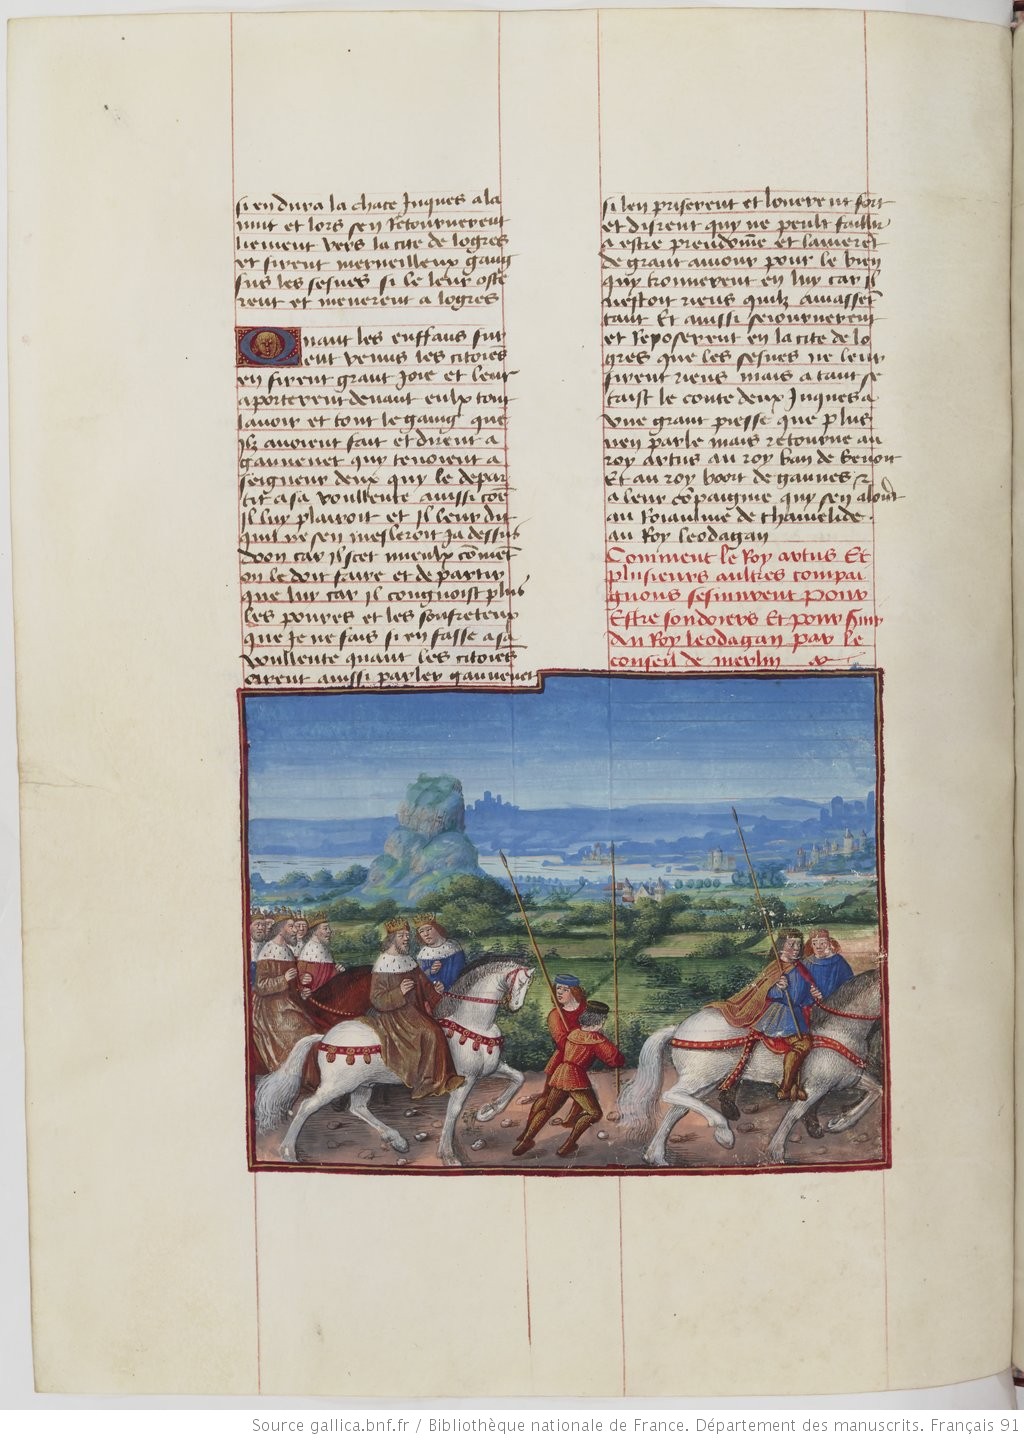 si en dura la chace Jnques a la
nuit et lors sen Retournerent
liement vers la cite de logres
et firent merveilleux gaing
sus les sesnes si le leur oste
rent et menerent a logres
Quant les enffans fur
ent venus les citoiẽs
en firent grant Joie et leur
aporterent devant eulx tout
lavoir et tout le gaing que
Ilz avoient fait et dirent a
gauvenet quy tenoient a
seigneur deux quy le depar
tit a sa voullente aussi cõe
Il luy plairoit et Il leur dit
quil ne sen mesleroit Ja dessus
doon car Il scet mieulx cõmẽt
on le doit faire et departir
que luy car Il congnoist plus
les povres et les souffreteux
que Je ne fais si en fasse a sa
voullente quant les citoiẽs
oirent aussi parler gauvenet
si len priserent et louerent fort
et disrent quy ne peult faillir
a estre preudõme et lamerẽt
de grant amour pour le bien
quy trouverent en luy car Il
nestoit riens quilz amassẽt
tant Et aussi seiournerent
et Reposerent en la cite de lo
gres que les sesnes ne leur
firent riens mais a tant se
taist le conte deux Jnques a
une grant piesse que plus
nen parle mais retourne au
roy artus au roy ban de benoit
Et au roy boort de gaunes
a leur cõpaignie quy sen alerẽt
au Roiaulme de thamelide.
au Roy leodagan
Comment le Roy artus Et
plusieurs aultres compai
gnons sesmurent pour
Estre soudoiers Et pour
du Roy leodagan par le
conseil de merlin
Source gallica.bnf.fr / Bibliothèque nationale de France. Département des manuscrits. Français 91